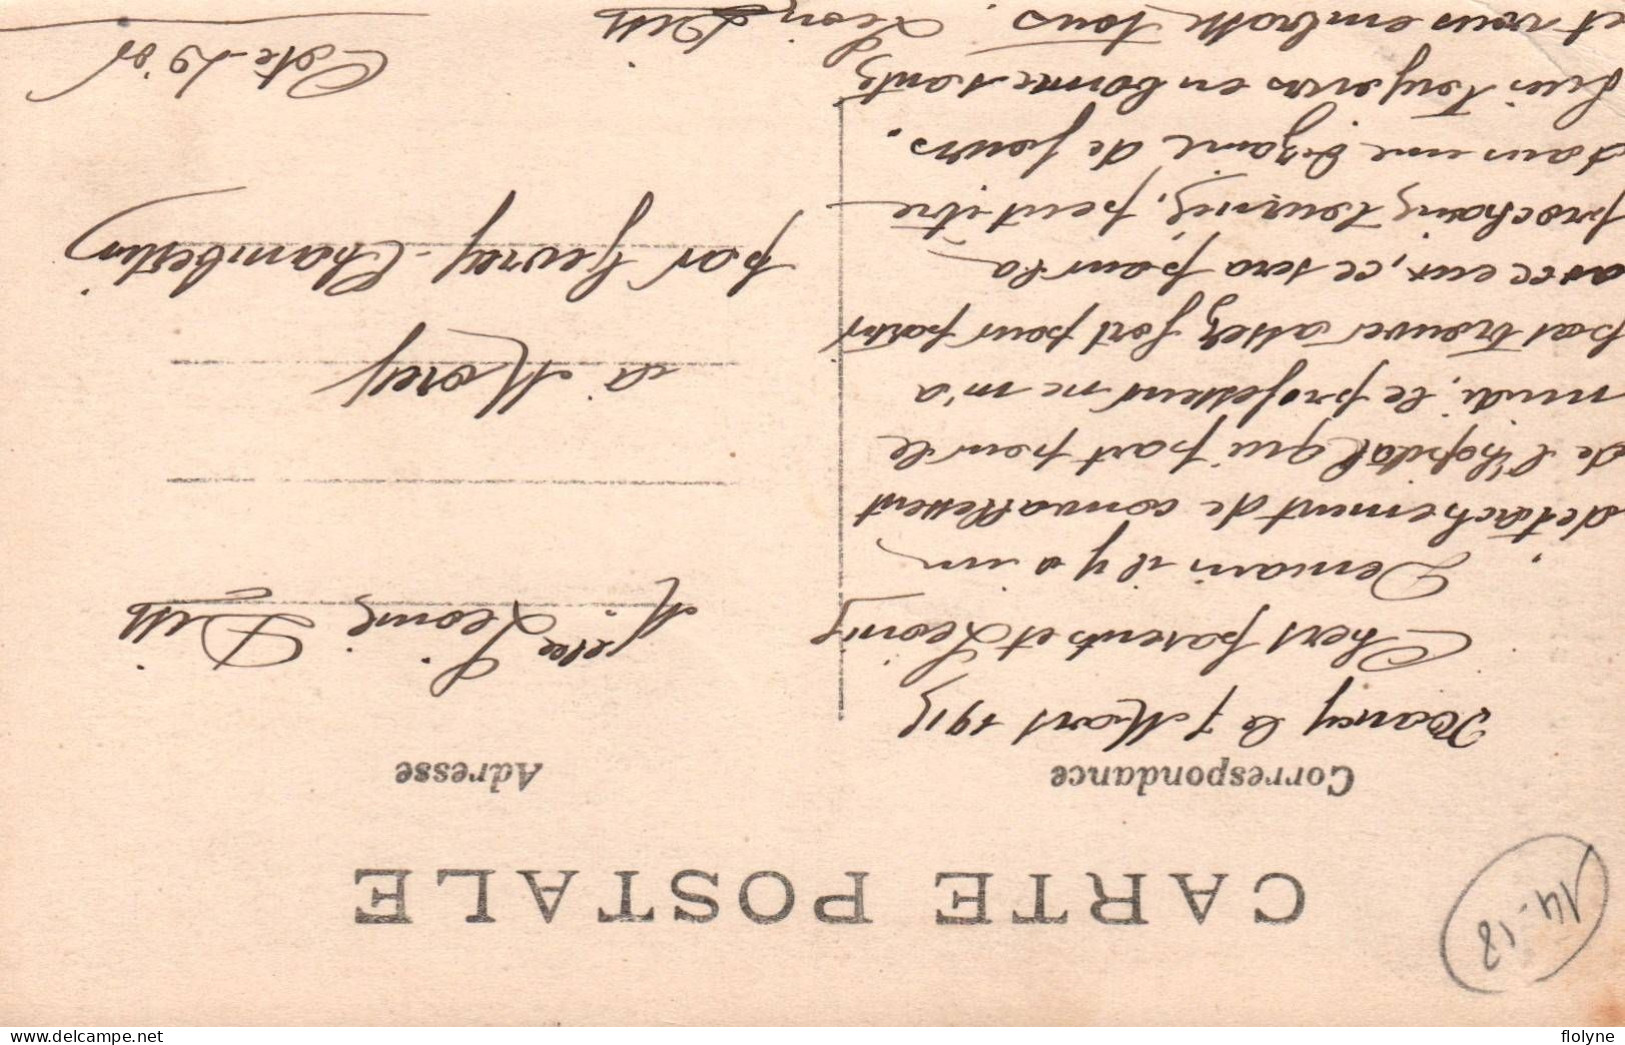 14-18
CARTE POSTALE
Correspondance
Adresse
Nancy le 7 Mars 1915
Chers parents et Léonie
Demain il y a un
détachement de convallessent
de l'hopital qui part pour le
midi, le professeur ne m'a
pas trouver assez fort pour partir
avec eux, ce sera pour la
prochaine tournée, peut être
dans une dizaine de jours.
Suis toujours en bonne santé
et vous embrasse tous.
Léon
Melle Léonie
à Morey
par Gevrey-Chambertin
Côte-d'or
flolyne